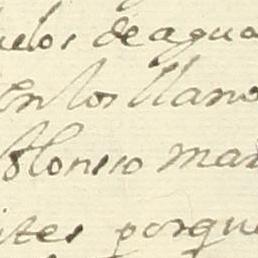 uelos de agua
en los llano
Alonsso mar
ites porque